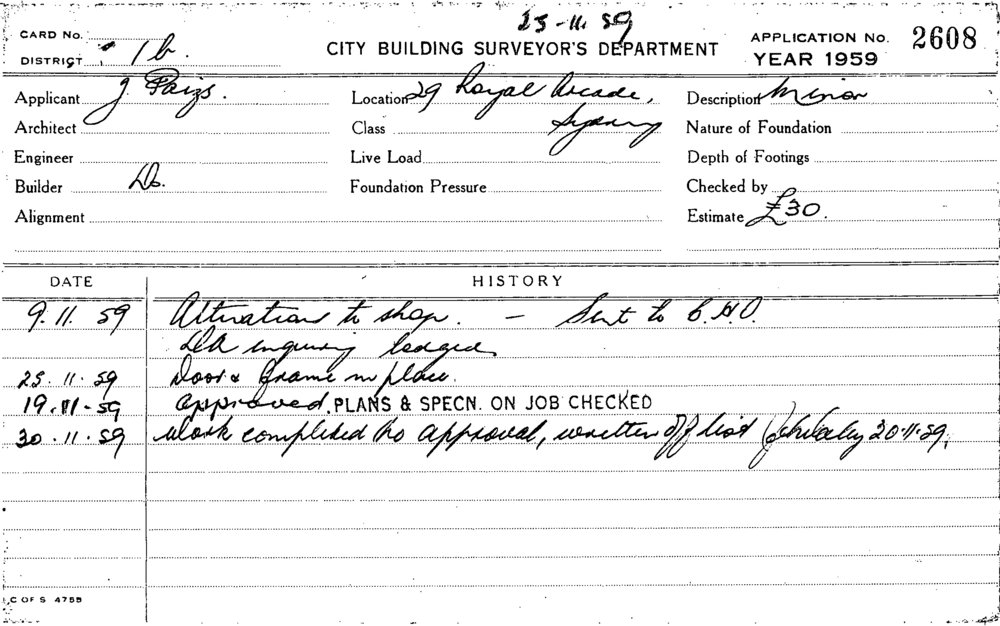 25-11-59
CARD No.
CITY BUILDING SURVEYOR'S DEPARTMENT
APPLICATION No. 2608
DISTRICT 1b
YEAR 1959
Applicant J. Paizs.
Location 29 Royal Arcade,
Description Minor
Architect
Class Sydney
Nature of Foundation
Engineer
Live Load
Depth of Footings
Builder Do.
Foundation Pressure
Checked by
Alignment
Estimate £30.
DATE HISTORY
9.11.59 Alterations to shop. - Sent to C.H.O.
DA inquiry lodged
25.11.59 Door & frame in place.
19.11-59 approved. PLANS & SPECN. ON JOB CHECKED
30.11.59 Work completed to approval, written off list 30.11.59.
C OF S 4755